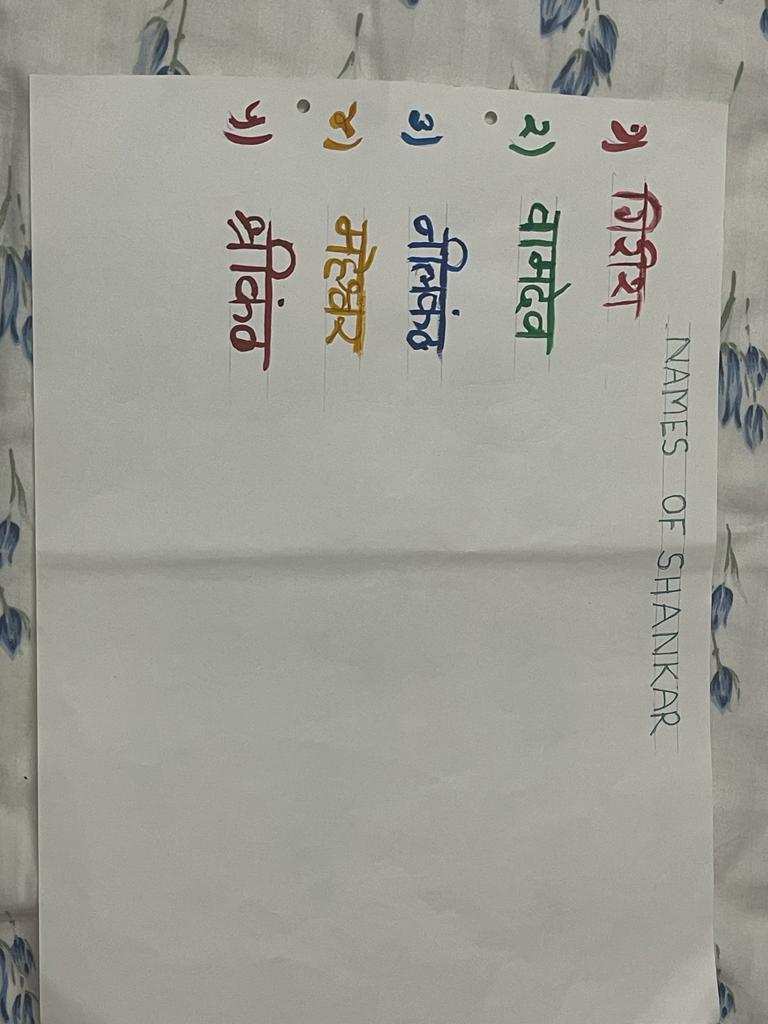 NAMES OF SHANKAR
१) गिरीश
२) वामदेव
३) नीलकंठ
४) महेश्वर
५) श्रीकंठ